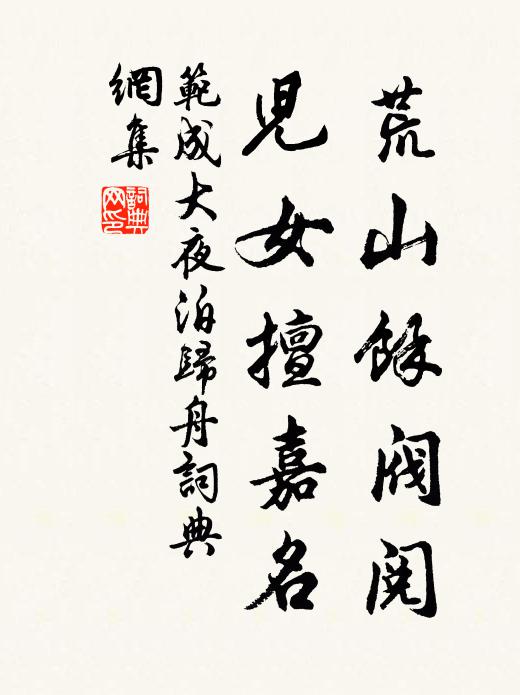 荒山餘閥閱
兒女擅嘉名
範成大夜泊歸舟詞典
網集
詞典
网印